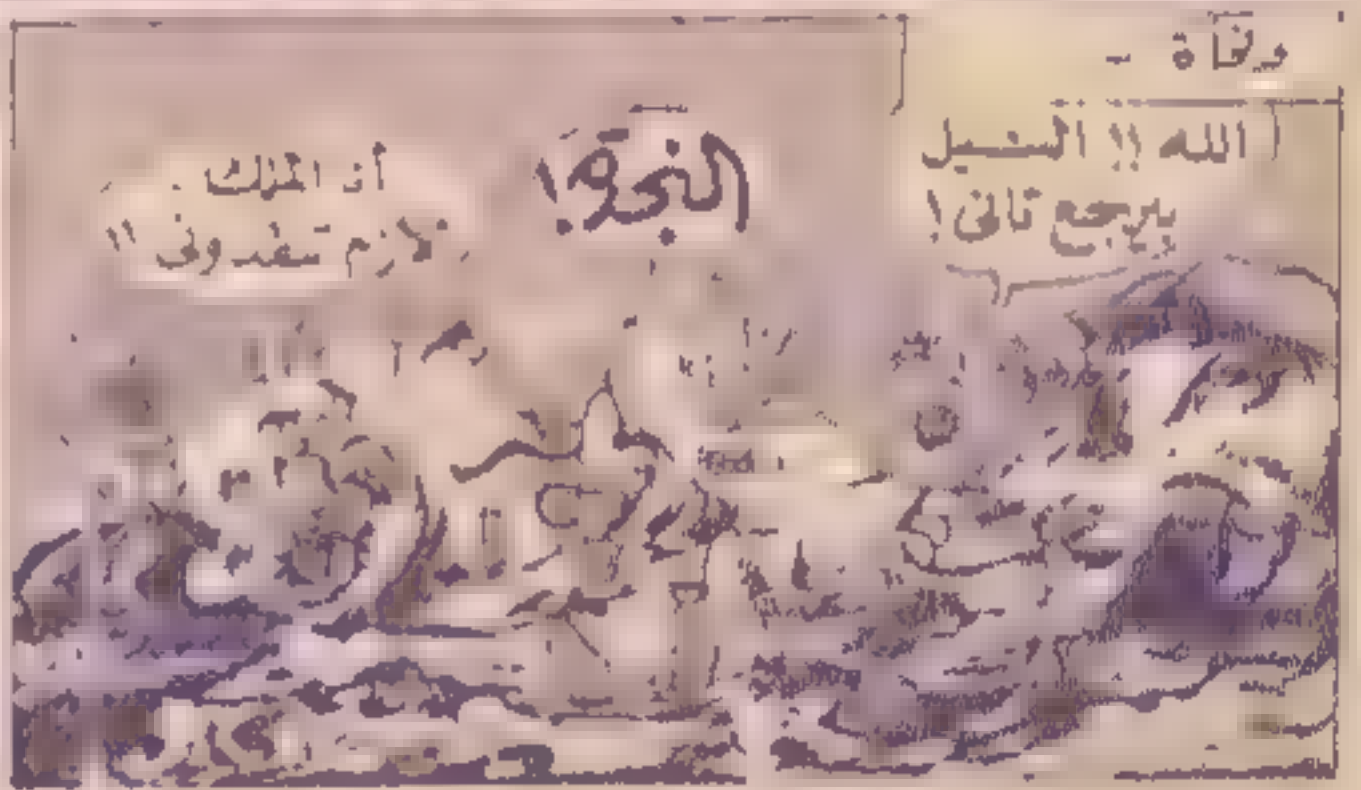 وفجأة -
الله !! السنبل
بيرجع تاني !
النجدة !
أنا الملك
لازم تنقذوني !!